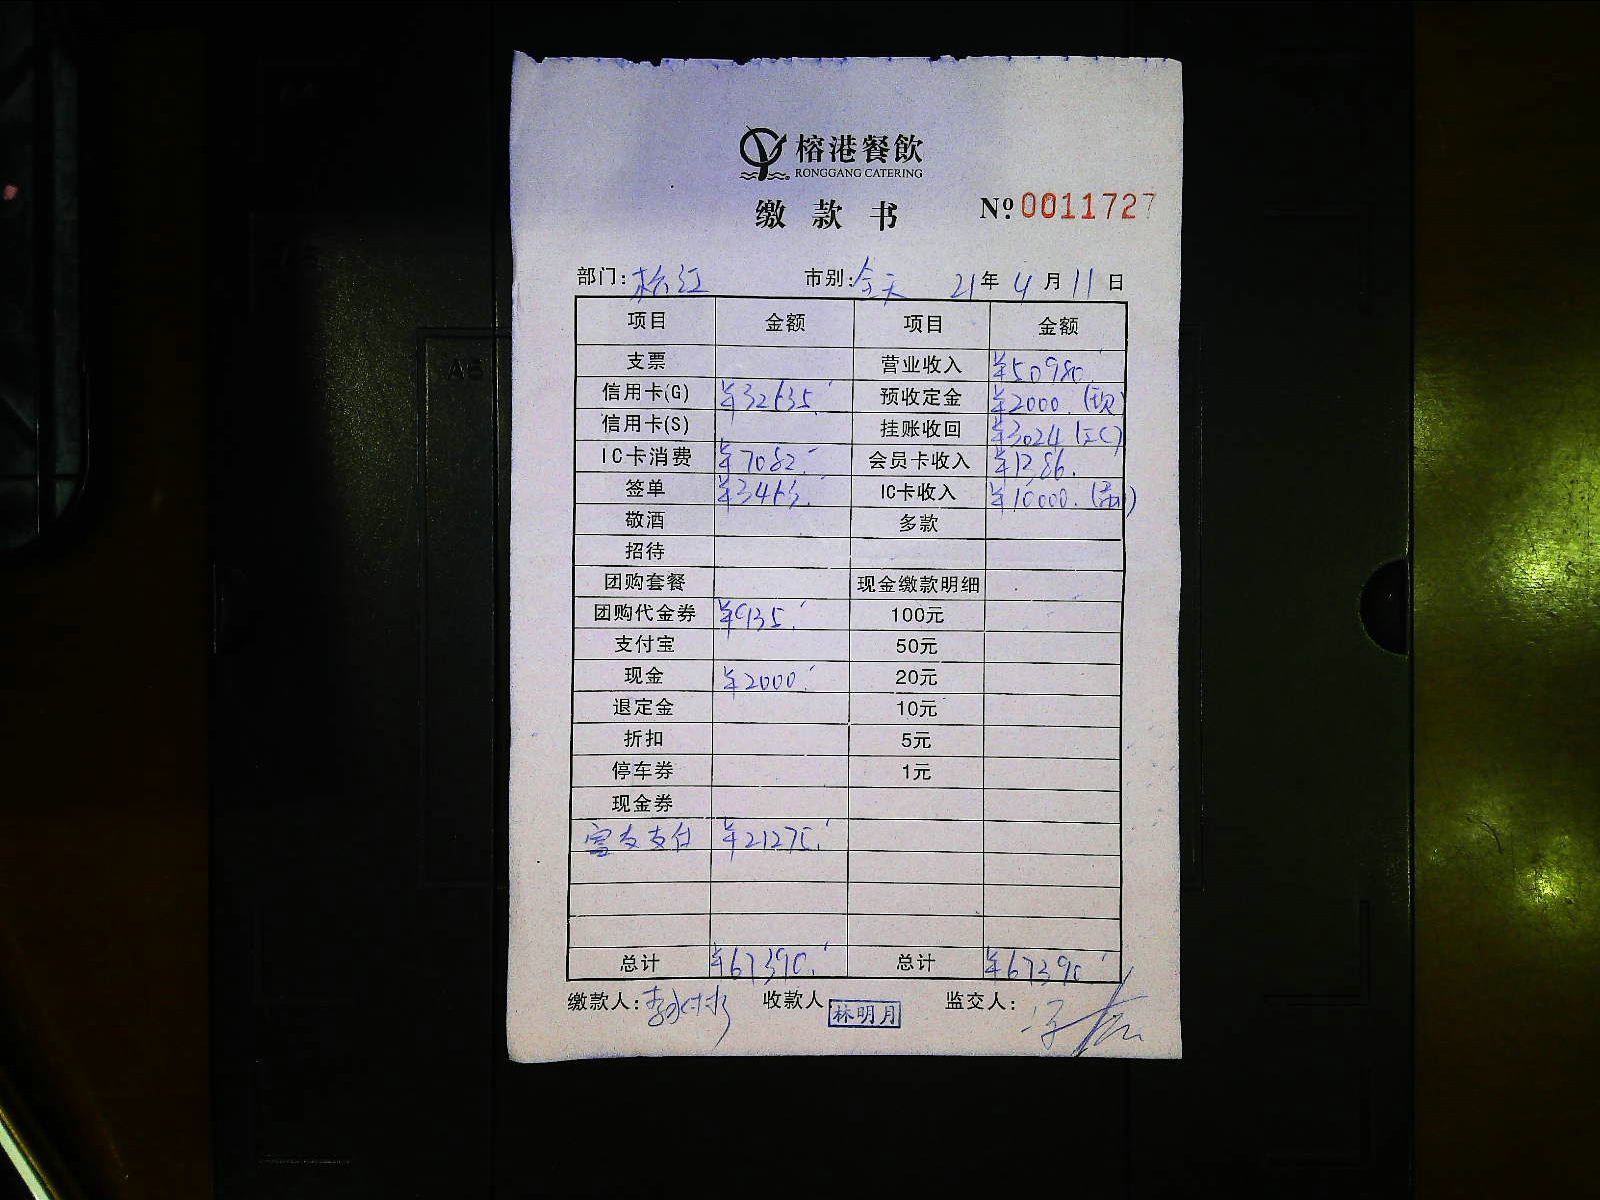 榕港餐飲
RONGGANG CATERING
缴款书 №0011727
部门: 松江 市别: 全天 21年4月11日
项目 金额 项目 金额
支票 营业收入 ¥50980.
信用卡(G) ¥32635. 预收定金 ¥2000.(现)
信用卡(S) 挂账收回 ¥3024
IC卡消费 ¥7082. 会员卡收入 ¥1386.
签单 ¥3463. IC卡收入 ¥10000.
敬酒 多款
招待
团购套餐 现金缴款明细
团购代金券 ¥935. 100元
支付宝 50元
现金 ¥2000. 20元
退定金 10元
折扣 5元
停车券 1元
现金券
富友支付 ¥21275.
总计 ¥67390. 总计 ¥67390
缴款人: 收款人 林明月 监交人: